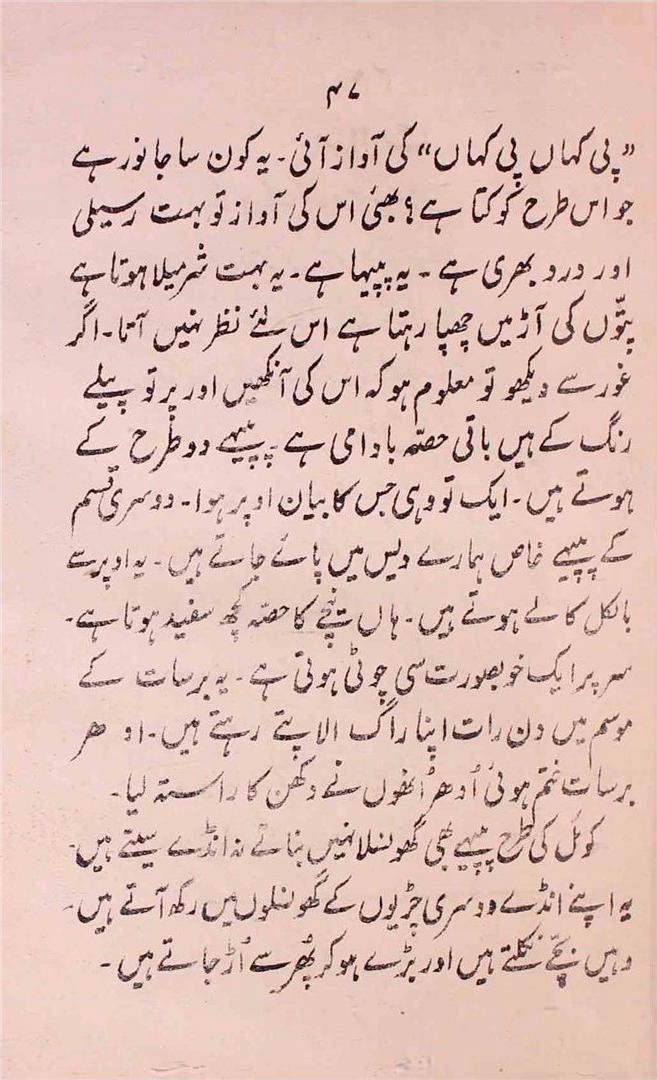 ۴۷
”پی کہاں پی کہاں“ کی آواز آئی۔ یہ کون سا جانور ہے
جو اس طرح کوکتا ہے؟ بھئی اس کی آواز تو بہت رسیلی
اور درد بھری ہے۔ یہ پپیہا ہے۔ یہ بہت شرمیلا ہوتا ہے
پتّوں کی آڑ میں چھپا رہتا ہے اس لئے نظر نہیں آتا۔ اگر
غور سے دیکھو تو معلوم ہو کہ اس کی آنکھیں اور پر تو پیلے
رنگ کے ہیں باقی حصّہ بادامی ہے۔ پپیہے دو طرح کے
ہوتے ہیں۔ ایک تو وہی جس کا بیان اوپر ہوا۔ دوسری قسم
کے پپیہے خاص ہمارے دیس میں پائے جاتے ہیں۔ یہ اوپر سے
بالکل کالے ہوتے ہیں۔ ہاں نیچے کا حصّہ کچھ سفید ہوتا ہے۔
سر پر ایک خوبصورت سی چوٹی ہوتی ہے۔ یہ برسات کے
موسم میں دن رات اپنا راگ الاپتے رہتے ہیں۔ ادھر
برسات ختم ہوئی اُدھر اُنھوں نے دکھن کا راستہ لیا۔
کوئل کی طرح پپیہے بھی گھونسلا نہیں بناتے نہ انڈے سیتے ہیں۔
یہ اپنے انڈے دوسری چڑیوں کے گھونسلوں میں رکھ آتے ہیں۔
وہیں بچّے نکلتے ہیں اور بڑے ہو کر پھُر سے اُڑ جاتے ہیں۔